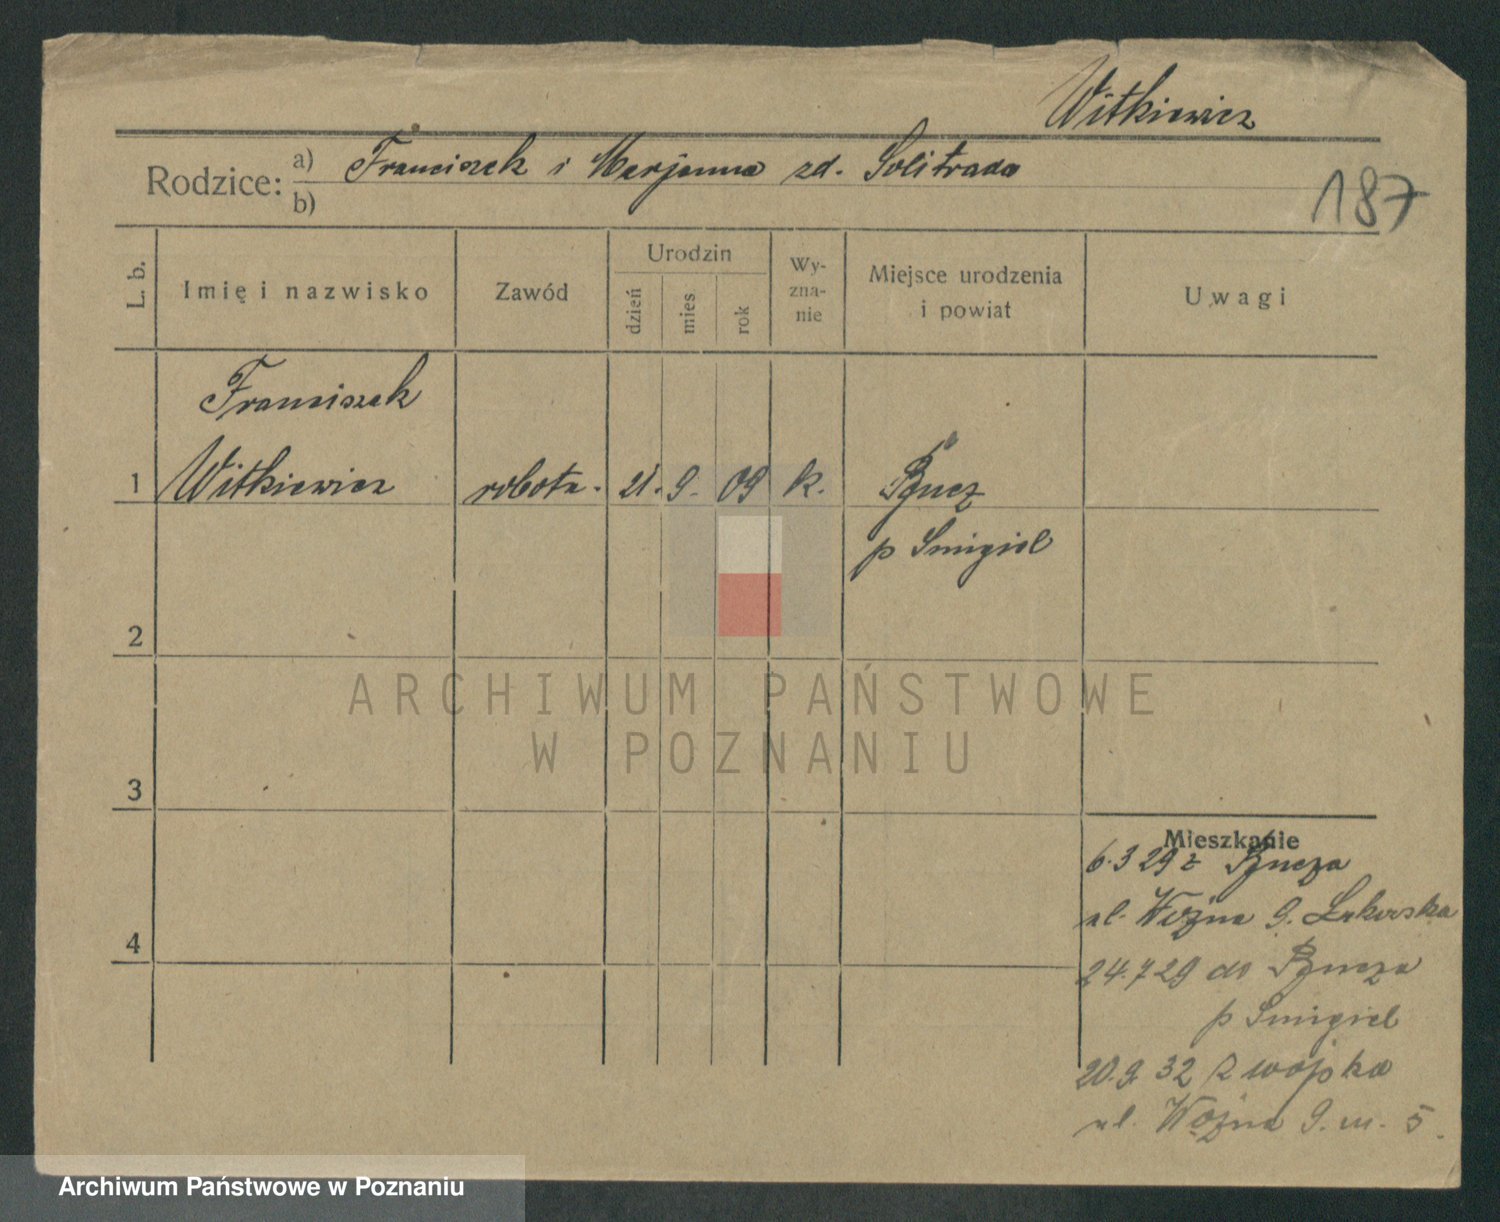 Witkiewicz
Rodzice: a) Franciszek i Marjanna zd. Solitrada
b)
187
L. b.
Imię i nazwisko
Zawód
Urodzin
dzień
mies
rok
Wy-
zna-
nie
Miejsce urodzenia
i powiat
Uwagi
Franciszek
1 Witkiewicz robotn. 21. 9. 09 k.
p Smigiel
2
3
4
ARCHIWUM PAŃSTWOWE
W POZNANIU
Mieszkanie
6.3 29 z
ul. Woźna 9.
24.7 29 do
p Smigiel
20.9 32 z wojska
ul. Woźna 9. m. 5.
Archiwum Państwowe w Poznaniu